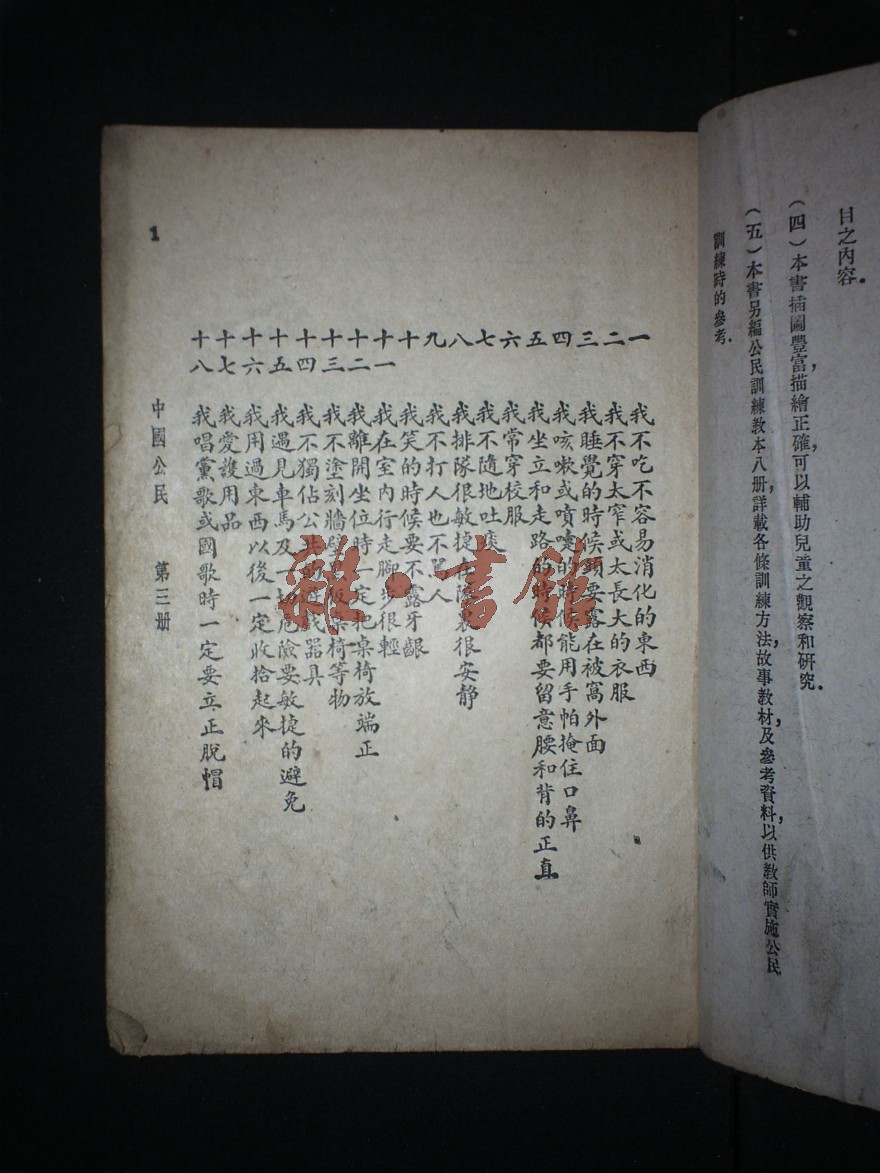 目之內容.
(四)本書插圖豐富,描繪正確,可以輔助兒童之觀察和研究.
(五)本書另編公民訓練教本八册,詳載各條訓練方法,故事教材,及參考資料,以供教師實施公民
訓練時的參考.
一 我不吃不容易消化的東西
二 我不穿太窄或太長大的衣服
三 我睡覺的時候頭要露在被窩外面
四 我咳嗽或噴嚏的時候能用手帕掩住口鼻
五 我坐立和走路的時候都要留意腰和背的正直
六 我常穿校服
七 我不隨地吐痰
八 我排隊很敏捷在隊裏很安靜
九 我不打人也不罵人
十 我笑的時候要不露牙齦
十一 我在室內行走腳步很輕
十二 我離開坐位時一定把桌椅放端正
十三 我不塗刻牆壁黑板桌椅等物
十四 我不獨佔公共的遊戲器具
十五 我遇見車馬及一切危險要敏捷的避免
十六 我用過東西以後一定收拾起來
十七 我愛護用品
十八 我唱黨歌或國歌時一定要立正脫帽
中國公民 第三册
1
雜·書館